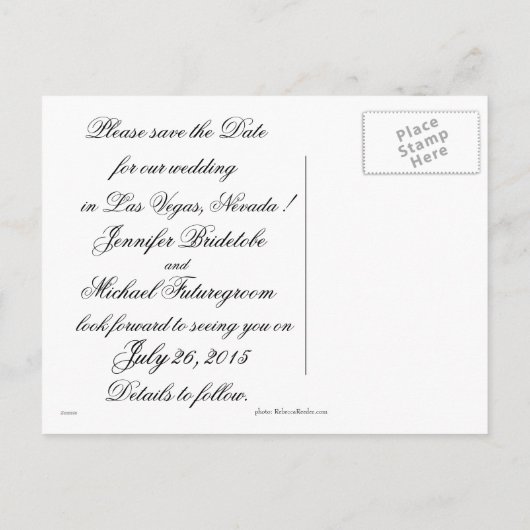 Please save the Date
for our wedding
in Las Vegas, Nevada !
Jennifer Bridetobe
and
Michael Futuregroom
look forward to seeing you on
July 26, 2015
Details to follow.
Place
Stamp
Here
Zazzle
photo: RebeccaReeder.com